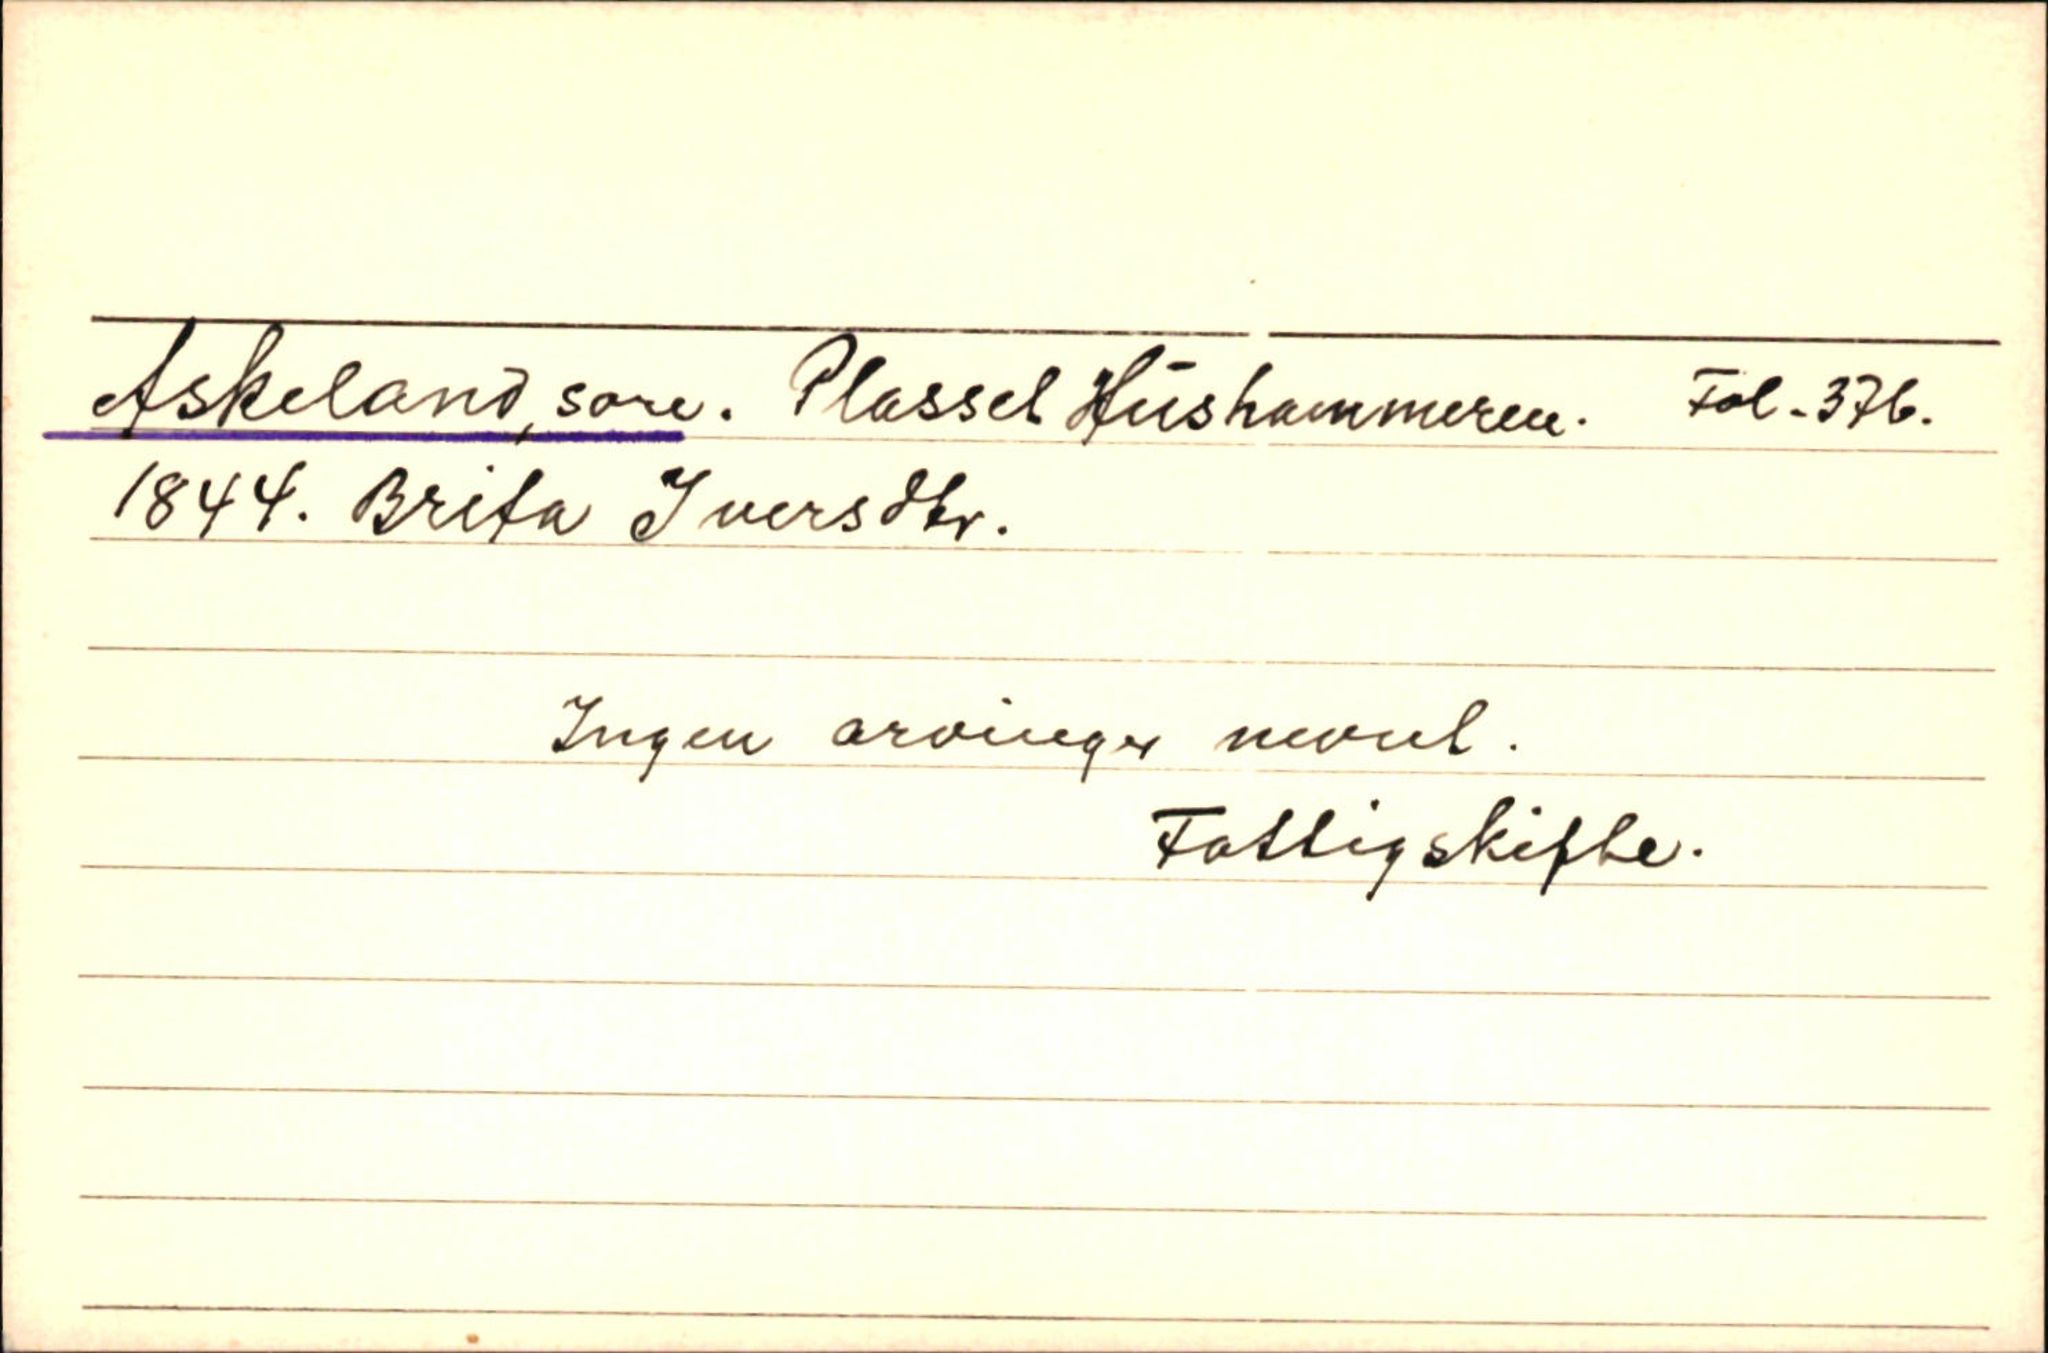 Askeland, søre. Plasset Hushammeren. Fol. 37b.
1844. Brita Iversdtr.
Ingen arvinger nevnt.
Fattigskifte.